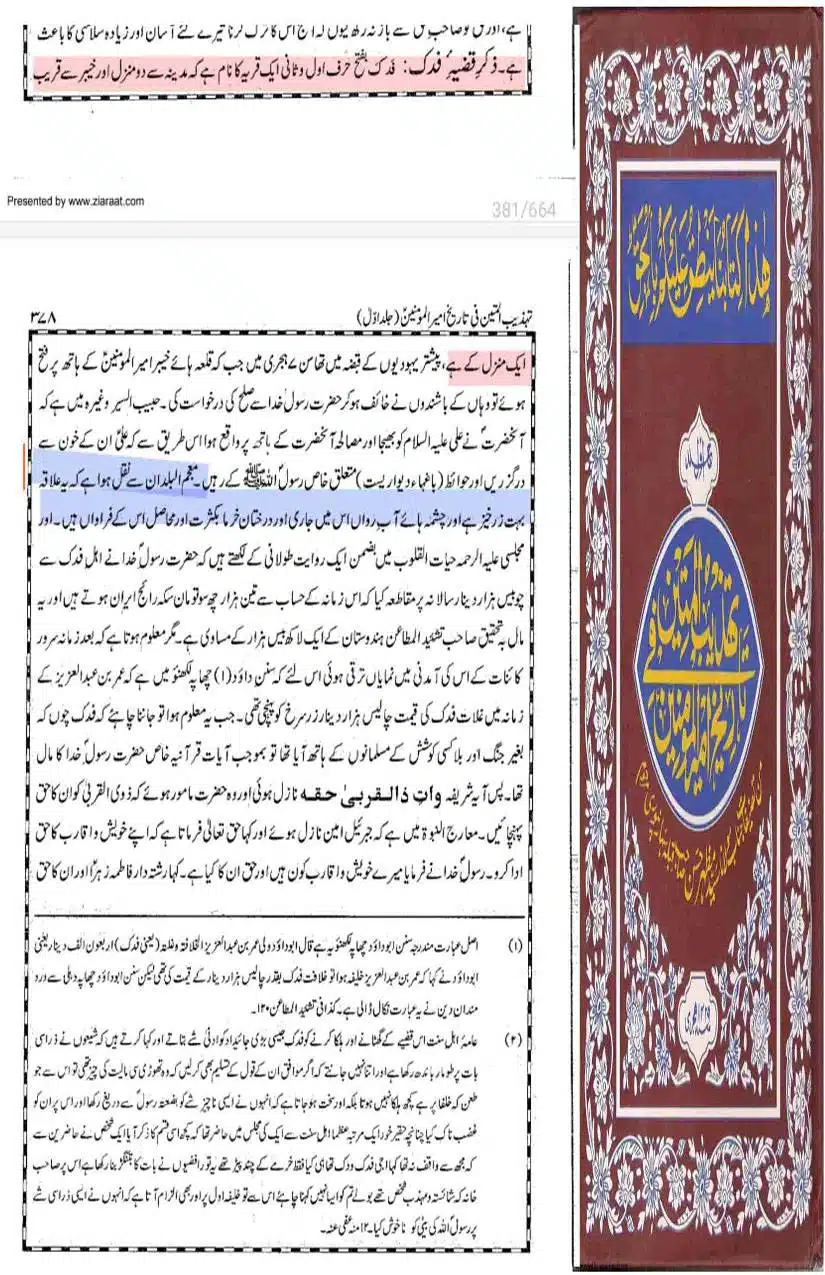 ہے۔ ذکرِ قضیۂ فدک: فدک بفتح حرف اول و ثانی ایک قریہ کا نام ہے کہ مدینہ سے دو منزل اور خیبر سے قریب
Presented by www.ziaraat.com
381/664
تہذیب المتین فی تاریخ امیر المومنینؑ (جلد اوّل) ۳۷۸
ایک منزل کے ہے، پیشتر یہودیوں کے قبضہ میں تھا سن ۷ ہجری میں جب کہ قلعہ ہائے خیبر امیر المومنینؑ کے ہاتھ پر فتح
ہوئے تو وہاں کے باشندوں نے خائف ہو کر حضرت رسولؐ خدا سے صلح کی درخواست کی۔ حبیب السیر وغیرہ میں ہے کہ
آنحضرتؐ نے علی علیہ السلام کو بھیجا اور مصالحہ آنحضرت کے ہاتھ پر واقع ہوا اس طریق سے کہ علیؑ ان کے خون سے
درگزریں اور حوائط (باغہاء دیواریست) متعلق خاص رسولؐ اللہ ﷺ کے رہیں۔ معجم البلدان سے نقل ہوا ہے کہ یہ علاقہ
بہت زرخیز ہے اور چشمہ ہائے آب رواں اس میں جاری اور درختان خرما بکثرت اور محاصل اس کے فراواں ہیں۔ اور
مجلسی علیہ الرحمہ حیات القلوب میں بضمن ایک روایت طولانی کے لکھتے ہیں کہ حضرت رسولؐ خدا نے اہل فدک سے
چوبیس ہزار دینار سالانہ پر مقاطعہ کیا کہ اس زمانہ کے حساب سے تین ہزار چھ سو تومان سکہ رائج ایران ہوتے ہیں اور یہ
مال بہ تحقیق صاحب تشئید المطاعن ہندوستان کے ایک لاکھ بیس ہزار کے مساوی ہے۔ مگر معلوم ہوتا ہے کہ بعد زمانہ سرور
کائنات کے اس کی آمدنی میں نمایاں ترقی ہوئی اس لئے کہ سنن داؤد (۱) چھاپہ لکھنؤ میں ہے کہ عمر بن عبدالعزیز کے
زمانہ میں غلات فدک کی قیمت چالیس ہزار دینار زر سرخ کو پہنچی تھی۔ جب یہ معلوم ہوا تو جاننا چاہئے کہ فدک چوں کہ
بغیر جنگ اور بلا کسی کوشش کے مسلمانوں کے ہاتھ آیا تھا تو بموجب آیات قرآنیہ خاص حضرت رسولؐ خدا کا مال
تھا۔ پس آیہ شریفہ وات ذالقربیٰ حقه نازل ہوئی اور وہ حضرت مامور ہوئے کہ ذوی القربیٰ کو ان کا حق
پہنچائیں۔ معارج النبوۃ میں ہے کہ جبرئیل امین نازل ہوئے اور کہا حق تعالیٰ فرماتا ہے کہ اپنے خویش و اقارب کا حق
ادا کرو۔ رسولؐ خدا نے فرمایا میرے خویش و اقارب کون ہیں اور حق ان کا کیا ہے۔ کہا رشتہ دار فاطمہ زہراؑ اور ان کا حق
(۱) اصل عبارت مندرجہ سنن ابوداؤد چھاپہ لکھنؤ یہ ہے قال ابوداؤد ولی عمر بن عبدالعزیز الخلافۃ و غلتہ (یعنی فدک) اربعون الف دینار یعنی
ابوداؤد نے کہا کہ عمر بن عبدالعزیز خلیفہ ہوا تو خلافت فدک بقدر چالیس ہزار دینار کے قیمت کی تھی لیکن سنن ابوداؤد چھاپہ دہلی سے درد
مندان دین نے یہ عبارت نکال ڈالی ہے۔ کذا فی تشئید المطاعن ۱۲۰۔
(۲) عامۂ اہل سنت اس قضیے کے گھٹانے اور ہلکا کرنے کو فدک جیسی بڑی جائیداد کو ادنیٰ شے بتاتے اور کہا کرتے ہیں کہ شیعوں نے ذرا سی
بات پر طومار باندھ رکھا ہے اور اتنا نہیں جانتے کہ اگر موافق ان کے قول کے تسلیم بھی کر لیں کہ وہ تھوڑی سی مالیت کی چیز تھی تو اس سے جو
طعن کہ خلفا پر ہے کچھ ہلکا نہیں ہوتا بلکہ اور سخت ہو جاتا ہے کہ انہوں نے ایسی ناچیز شے کو بضعتہ رسولؐ سے دریغ رکھا اور اس پر ان کو
غضب ناک کیا چنانچہ حقیر خود ایک مرتبہ عظما اہل سنت سے ایک کی مجلس میں حاضر تھا کہ کچھ اسی قسم کا ذکر آیا ایک شخص نے حاضرین سے
کہ مجھ سے واقف نہ تھا کہا اجی فدک ودک تھا ہی کیا فقط خرمے کے چند پیڑ تھے یہ تو رافضیوں نے بات کا بتنگڑ بنا رکھا ہے اس پر صاحب
خانہ کہ شائستہ و مہذب شخص تھے بولے تم کو ایسا نہیں کہنا چاہئے اس سے تو خلیفہ اول پر اور بھی الزام آتا ہے کہ انہوں نے ایسی ذرا سی شے
پر رسولؐ اللہ کی بیٹی کو ناخوش کیا۔ ۱۲ منہ عفی عنہ۔
هذا كتابنا ينطق عليكم بالحق
تهذيب المتين
في
تاريخ امير المؤمنين